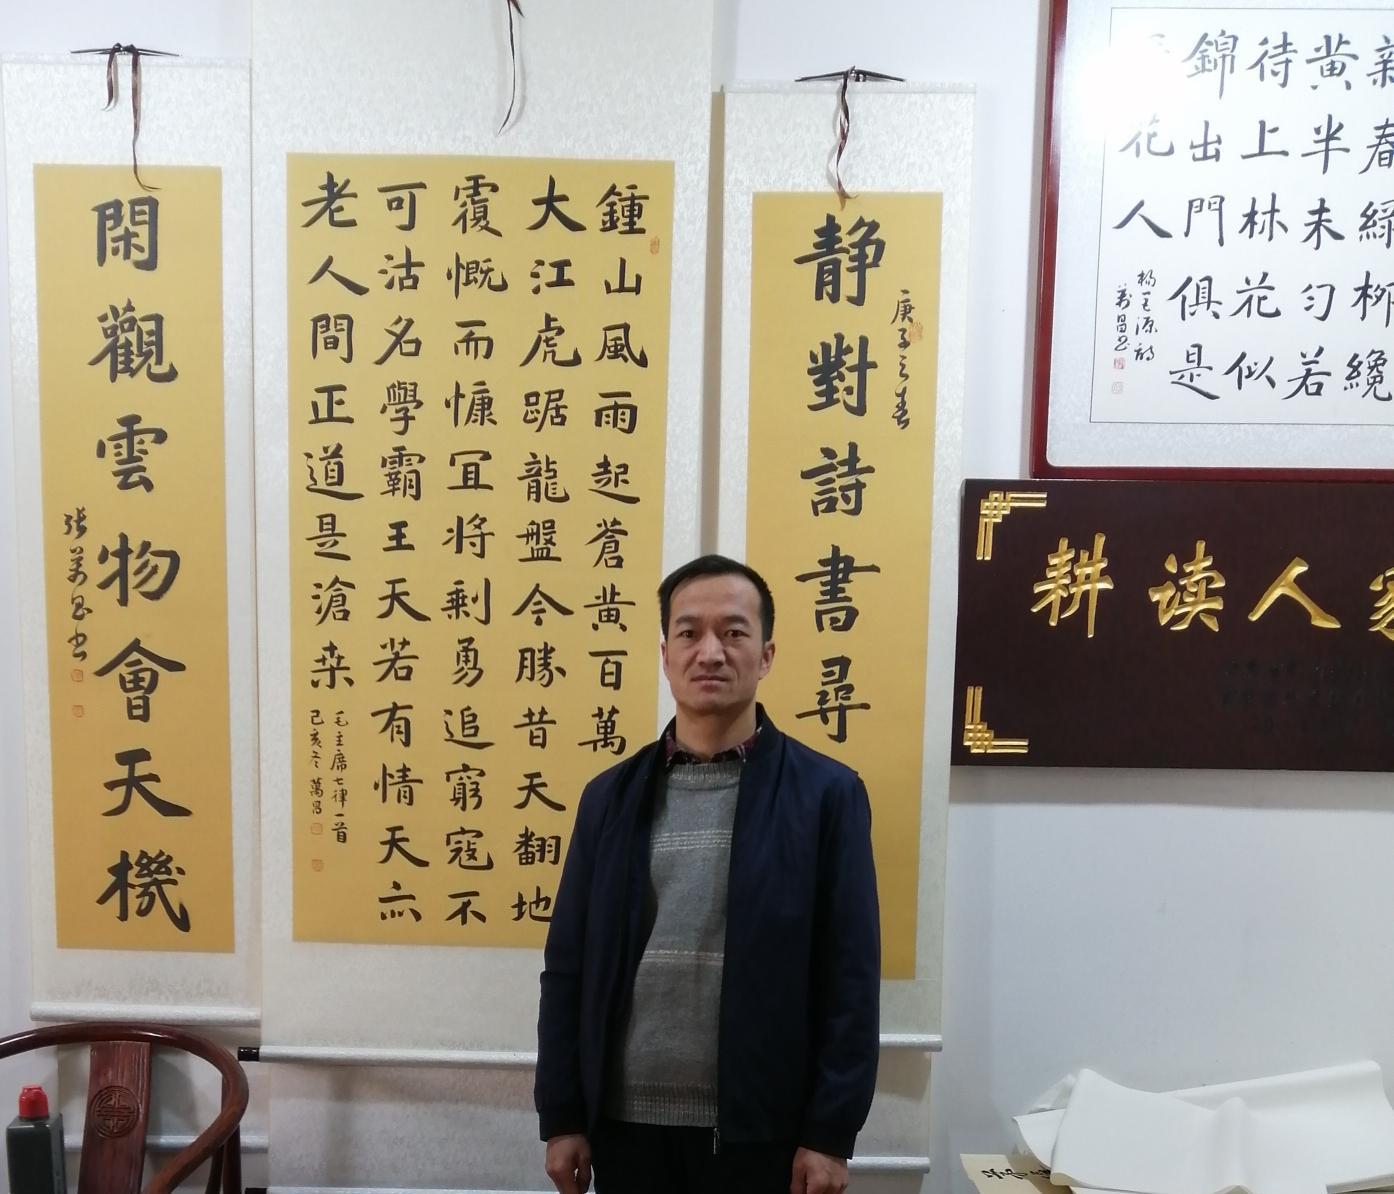 新春緑柳纔
黄半未匀若
待上林花似
錦出門俱是
花人
楊巨源詩
萬昌書
耕读人家
庚子之春
静對詩書尋
鍾山風雨起蒼黄百萬
大江虎踞龍盤今勝昔天翻地
覆慨而慷宜將剩勇追窮寇不
可沽名學霸王天若有情天亦
老人間正道是滄桑
毛主席七律一首
己亥冬萬昌
閑觀雲物會天機
張萬昌書